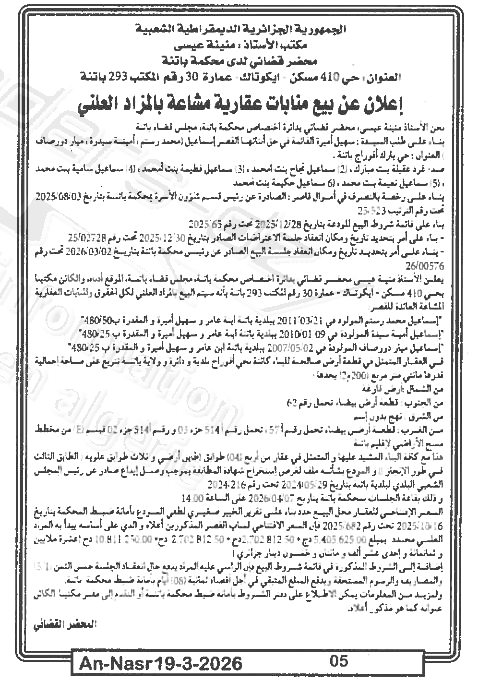 الجمهورية الجزائرية الديمقراطية الشعبية
مكتب الأستاذ: منينة عيسى
محضر قضائي لدى محكمة باتنة
العنوان: حي 410 مسكن - ايكوتاك - عمارة 30 رقم المكتب 293 باتنة
إعلان عن بيع منابات عقارية مشاعة بالمزاد العلني
نحن الأستاذ منينة عيسى، محضر قضائي بدائرة اختصاص محكمة باتنة، مجلس قضاء باتنة
بناء على طلب السيدة: سهيل أميرة القائمة في حق أبنائها القصر إسماعيل (محمد رستم، أمينة سيدرة، ميار دورصاف)
العنوان: حي بارك أفوراج باتنة.
ضد: فرد عقيلة بنت مبارك، (2) سماعيل نجاح بنت امحمد، (3) سماعيل فطيمة بنت أمحمد، (4) سماعيل سامية بنت محمد
، (5) سماعيل نعيمة بنت محمد، (6) سماعيل حكيمة بنت امحمد
بناء على رخصة بالتصرف في أموال قاصر: الصادرة عن رئيس قسم شؤون الأسرة بمحكمة باتنة بتاريخ 2025/08/03
تحت رقم الترتيب 25/523
بناء على قائمة شروط البيع المودعة بتاريخ 2025/12/28 تحت رقم 65/2025
- بناء على أمر بتحديد تاريخ ومكان انعقاد جلسة الاعتراضات الصادر بتاريخ 2025/12/30 تحت رقم 25/02728
- بناء على أمر بتحديد تاريخ ومكان انعقاد جلسة البيع الصادر عن رئيس محكمة باتنة بتاريخ 2026/03/02 تحت رقم
26/00576
يعلن الأستاذ منينة عيسى محضر قضائي بدائرة اختصاص محكمة باتنة، مجلس قضاء باتنة، الموقع أدناه، والكائن مكتبنا
بحي 410 مسكن - ايكوتاك - عمارة 30 رقم المكتب 293 باتنة بأنه سيتم البيع بالمزاد العلني لكل الحقوق والمنابات العقارية
المشاعة العائدة للقصر:
"إسماعيل محمد رستم المولود في 2011/03/21 ببلدية باتنة ابنه عامر و سهيل أميرة و المقدرة ب480/50"
"إسماعيل أمينة سيدة المولودة في 2010/01/09 ببلدية باتنة ابنة عامر و سهيل أميرة و المقدرة ب 480/25"
"إسماعيل ميار دورصاف المولودة في 2007/05/02 ببلدية باتنة ابن عامر و سهيل أميرة و المقدرة ب 480/25"
في العقار المتمثل في قطعة أرض صالحة للبناء كائنة بحي أفوراج بلدية و دائرة و ولاية باتنة تتربع على مساحة إجمالية
قدرها مائتي متر مربع (200م2) يحدها:
من الشمال: أرض فارغة
من الجنوب: قطعة أرض بيضاء تحمل رقم 62
من الشرق: نهج بدون إسم
من الغرب: قطعة أرض بيضاء، تحمل رقم 57، تحمل رقم 514 جزء 03 و رقم 514 جزء 02 قسم من مخطط
مسح الأراضي لإقليم باتنة
هذا مع كافة البناء المشيد عليها و المتمثل في عقار من أربع (04) طوابق (طابق أرضي و ثلاث طوابق علوية) الطابق الثالث
في طور الإنجاز و المودع بشأنه ملف لغرض إستخراج شهادة المطابقة بموجب وصل إيداع صادر عن رئيس المجلس
الشعبي البلدي لبلدية باتنة بتاريخ 2024/05/29 تحت رقم 2024-216
و ذلك بقاعة الجلسات بمحكمة باتنة بتاريخ 2026/04/07 على الساعة 14.00
السعر الإفتتاحي للعقار محل البيع حدد بناء على تقرير الخبير المودع بأمانة ضبط المحكمة بتاريخ
2025/10/16 تحت رقم 2025/682 فإن السعر الافتتاحي لمناب القصر المذكورين أعلاه و الذي على أساسه يبدأ به المزاد
العلني محدد بمبلغ 5.405.625.00 دج+ 2.702.812.50 دج+ 2.702.812.50 دج= 10.811.250.00 دج (عشرة ملايين
و ثمانمائة و إحدى عشر ألف و مائتان و خمسون دينار جزائري)
إضافة إلى الشروط المذكورة في قائمة شروط البيع فإن الراسي عليه المزاد يدفع حال انعقاد الجلسة خمس الثمن (5/1)
والمصاريف والرسوم المستحقة ويدفع المبلغ المتبقي في أجل أقصاه ثمانية (08) أيام بأمانة ضبط محكمة باتنة.
ولمزيد من المعلومات يمكن الاطلاع على دفتر الشروط بأمانة ضبط محكمة باتنة أو التقدم إلى مقر مكتبنا الكائن
عنوانه كما هو مذكور أعلاه.
المحضر القضائي
An-Nasr19-3-2026 05